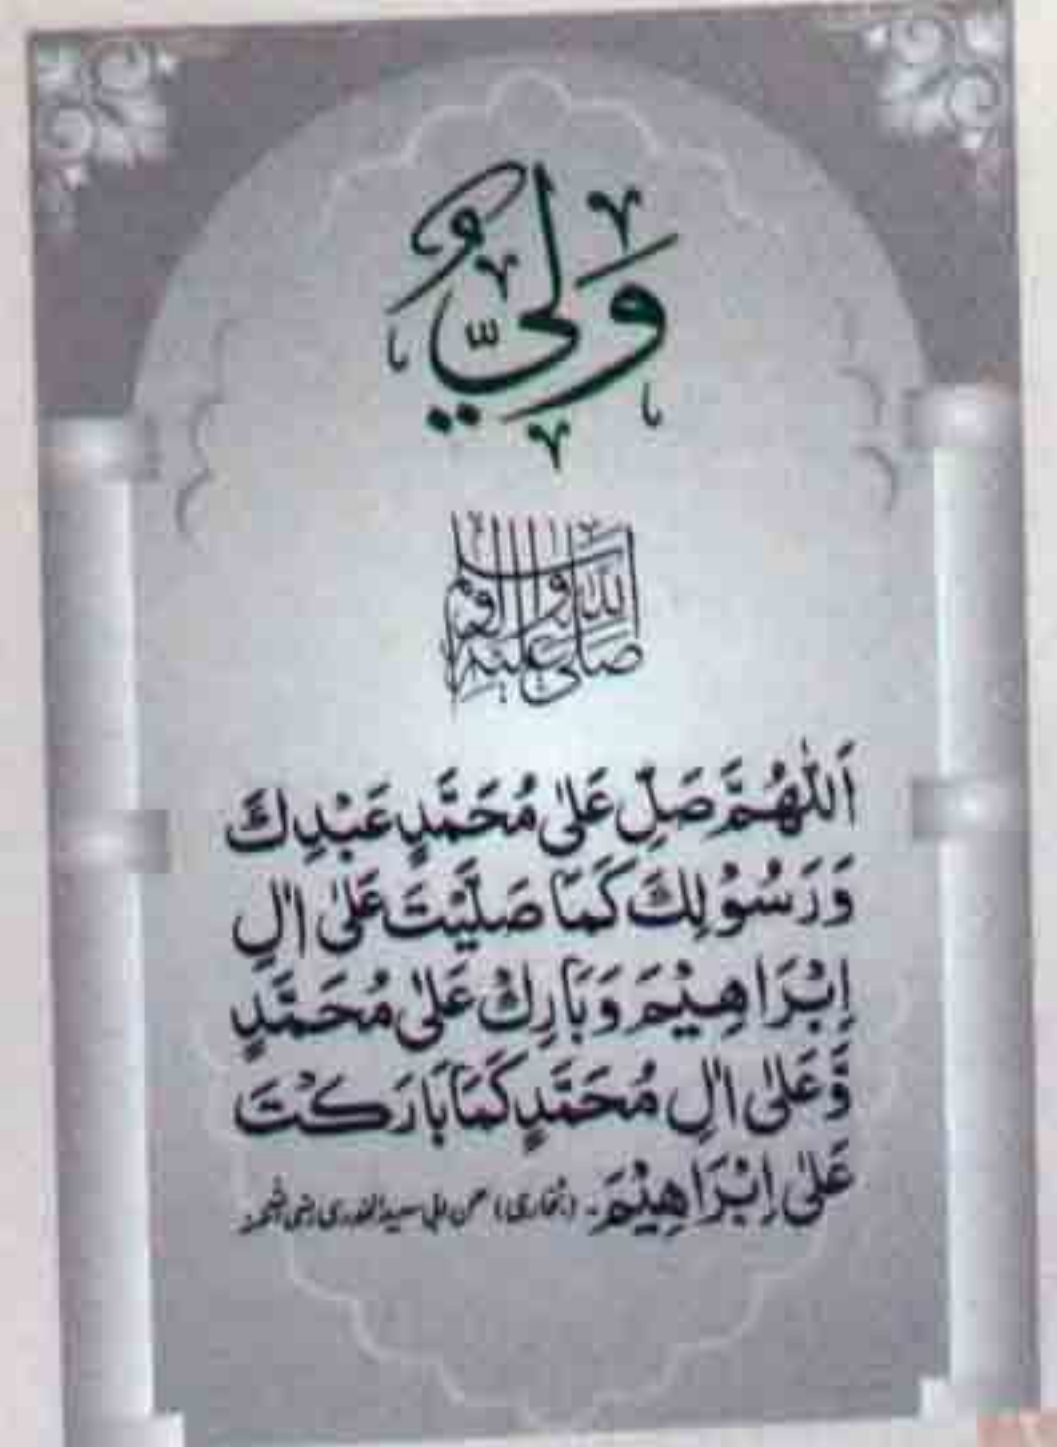 وَلِيٌّ
صلى الله عليه وآله وسلم
اَللّٰهُمَّ صَلِّ عَلٰی مُحَمَّدٍ عَبْدِكَ
وَرَسُوْلِكَ كَمَا صَلَّیْتَ عَلٰی اٰلِ
اِبْرَاهِیْمَ وَبَارِكْ عَلٰی مُحَمَّدٍ
وَّعَلٰی اٰلِ مُحَمَّدٍ كَمَا بَارَكْتَ
عَلٰی اِبْرَاهِیْمَ۔ (بخاری) عن ابی سعید الخدری رضی اللہ عنہ